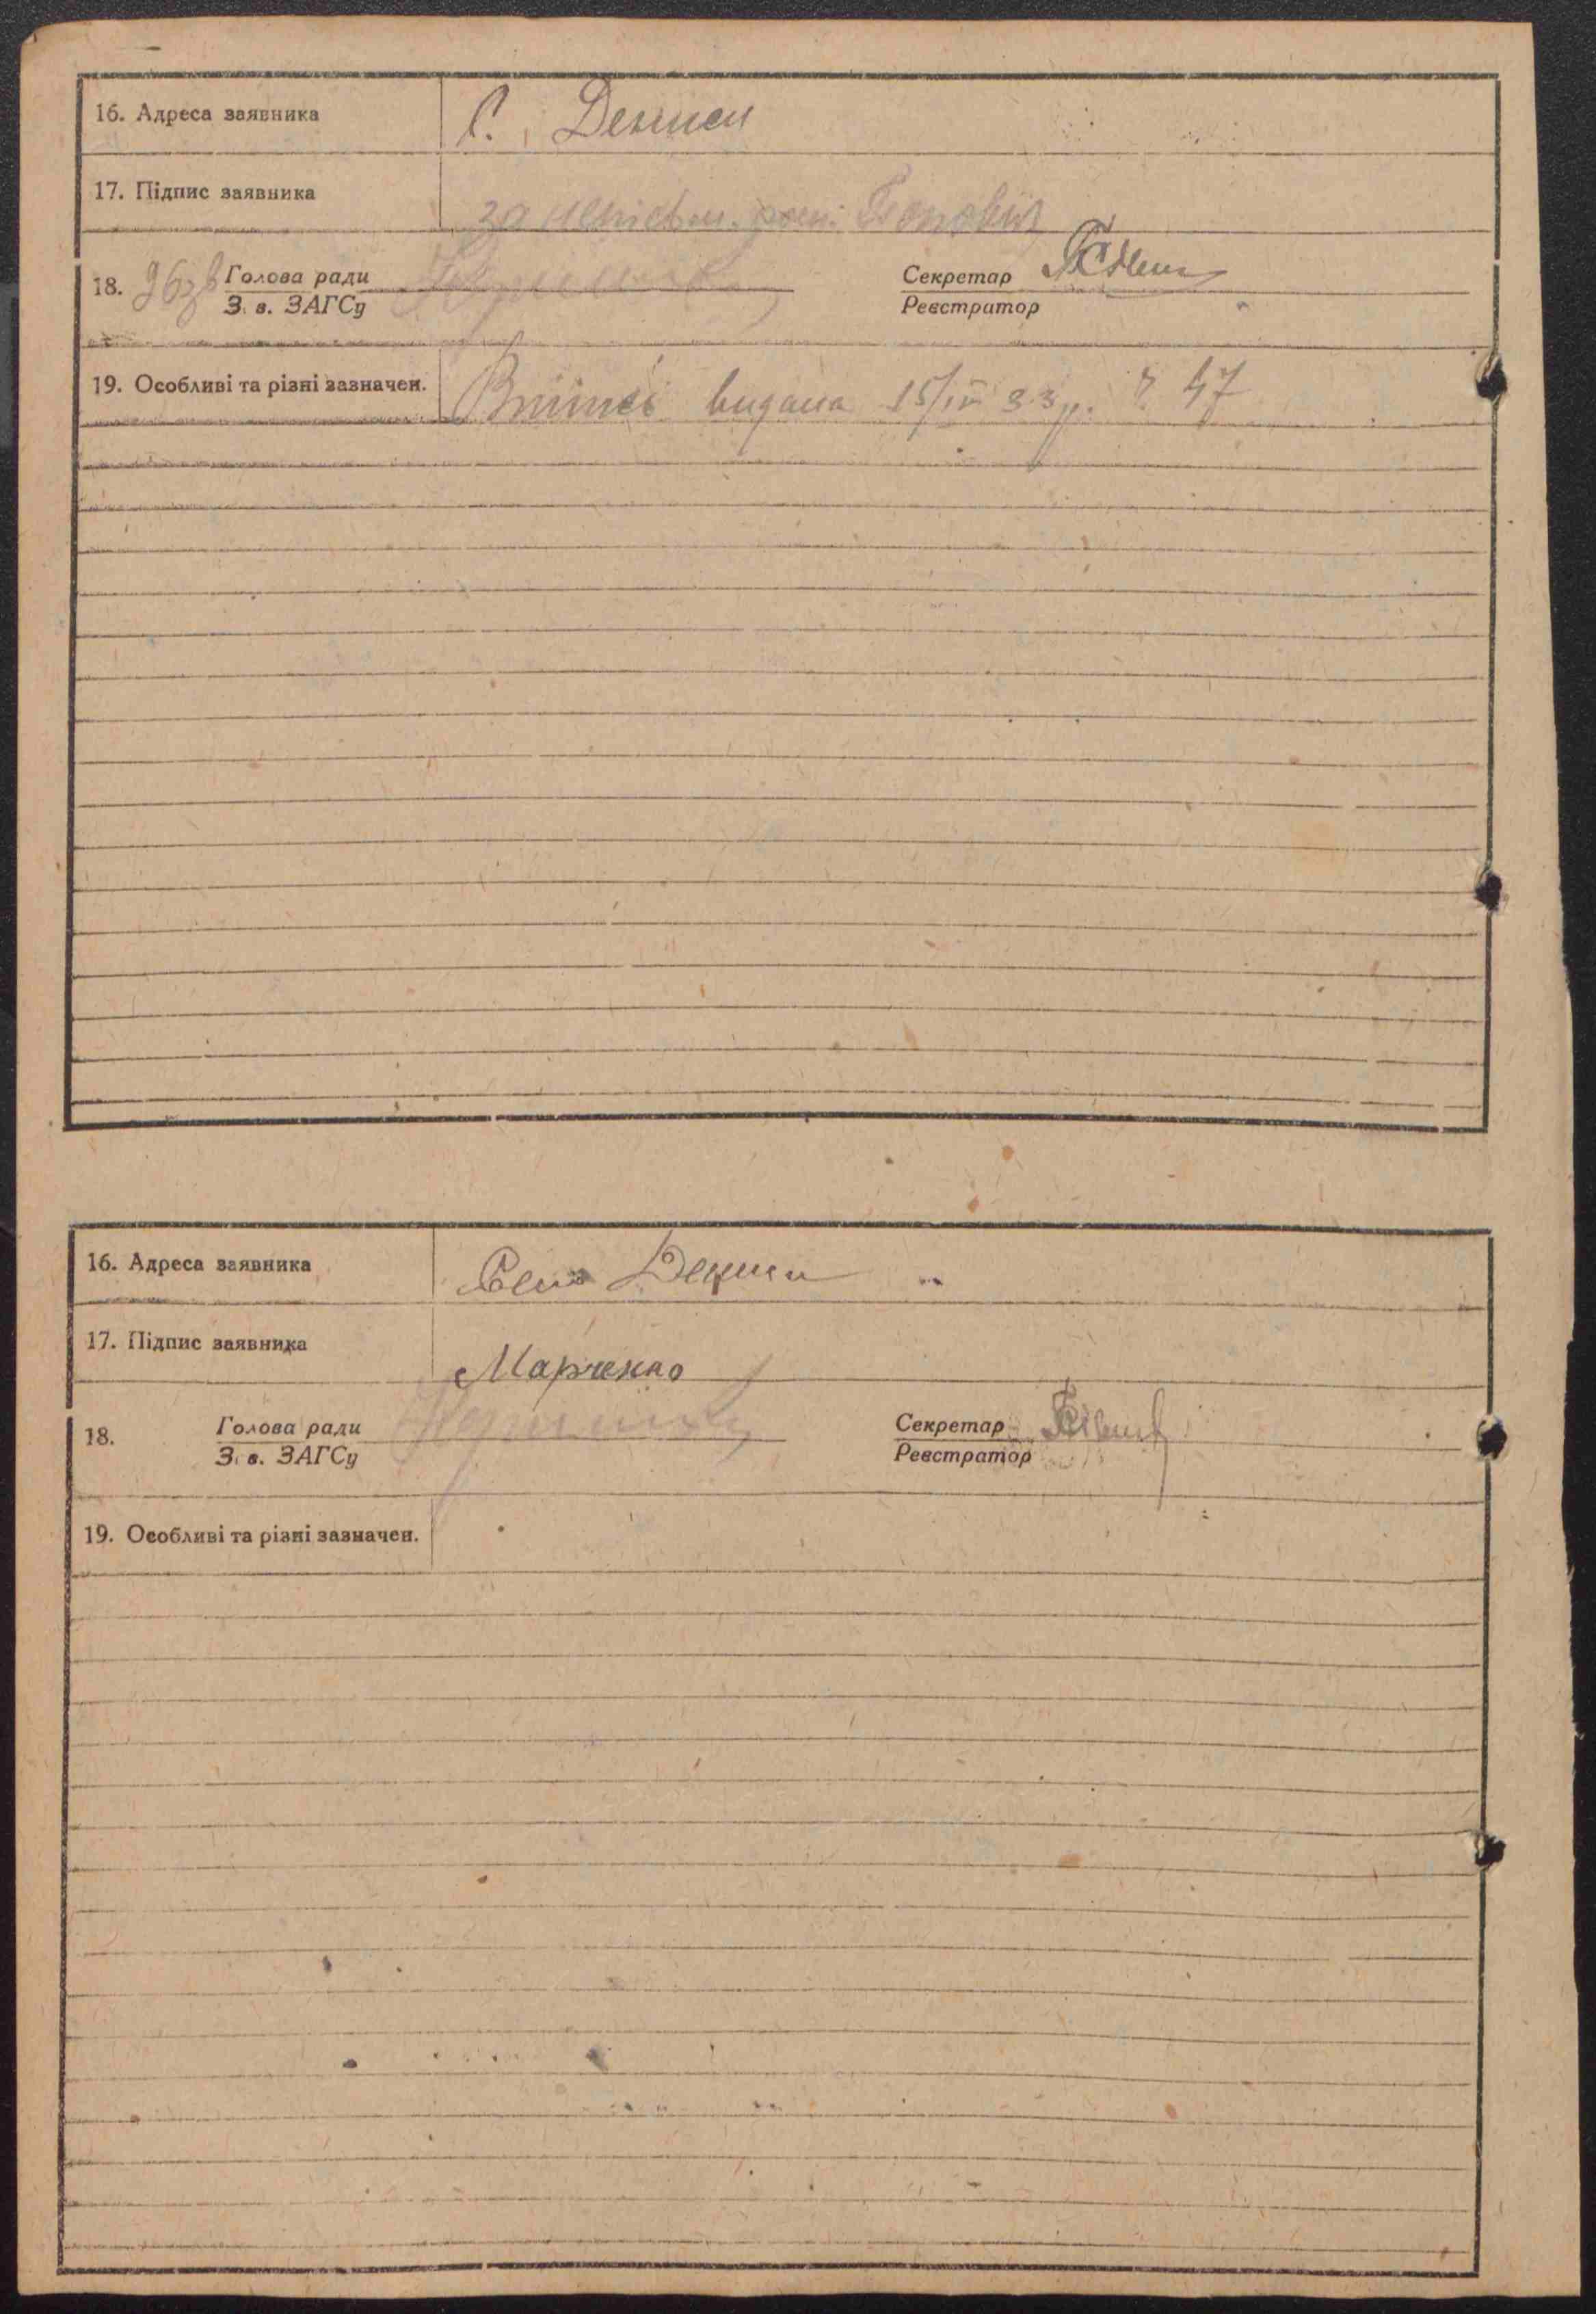 16. Адреса заявника С. Дениси
17. Підпис заявника за непісьм. розп. Попович
18. Голова ради Секретар
З. в. ЗАГСу Реєстратор
19. Особливі та різні зазначен. видана 15/IV 33 р. 47
16. Адреса заявника Село Дениси
17. Підпис заявника Марченко
18. Голова ради Секретар
З. в. ЗАГСу Реєстратор
19. Особливі та різні зазначен.